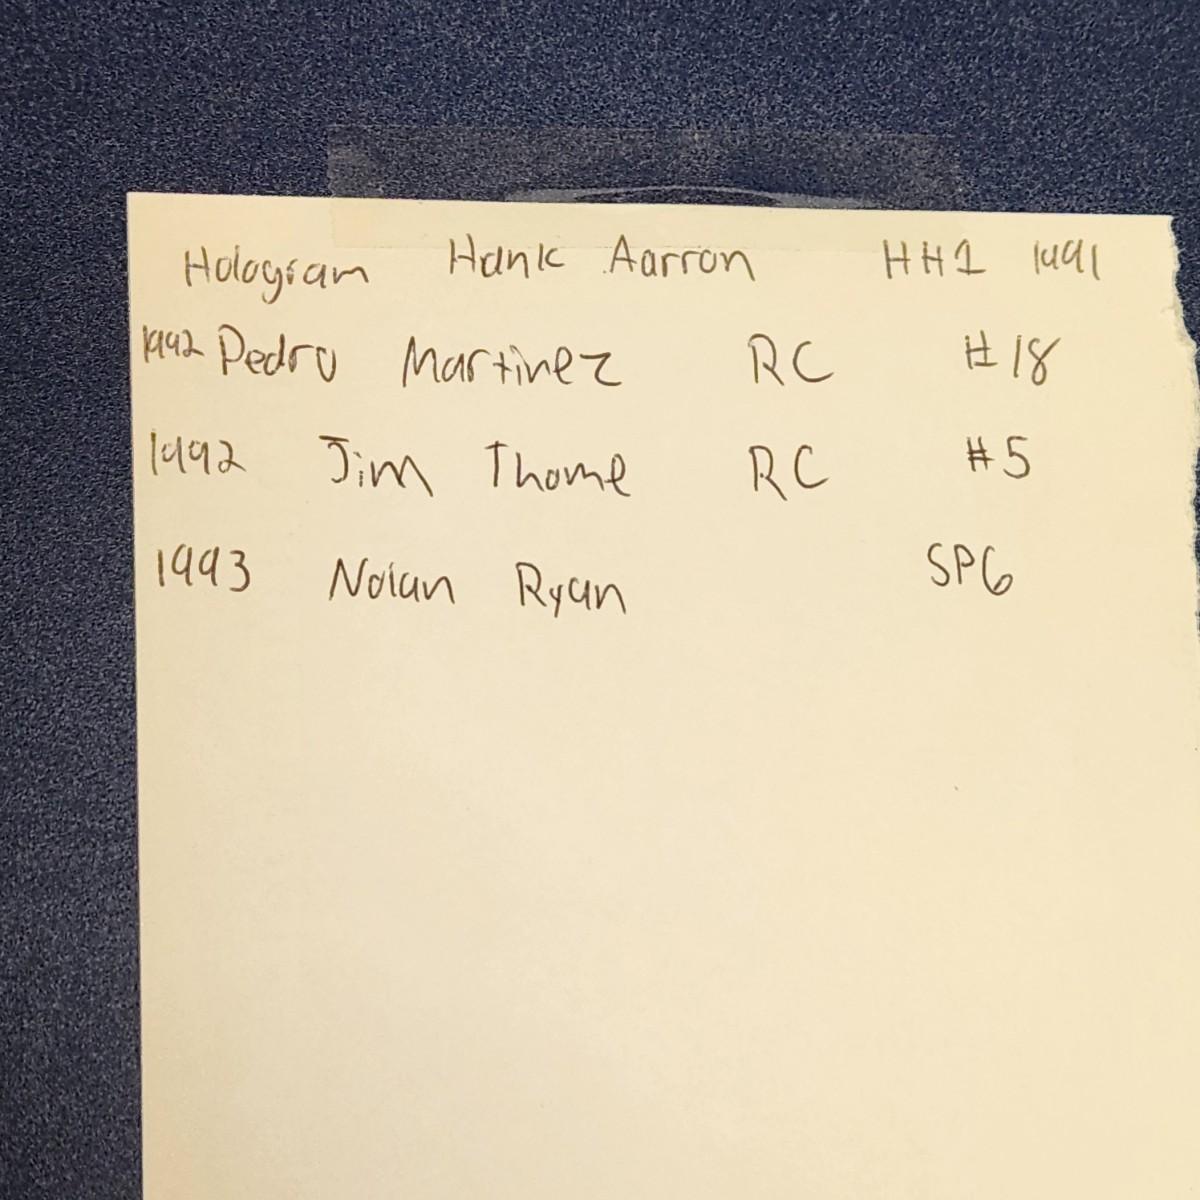 Hologram Hank Aarron HH1 1991
1992 Pedro Martinez RC #18
1992 Jim Thome RC #5
1993 Nolan Ryan SP6